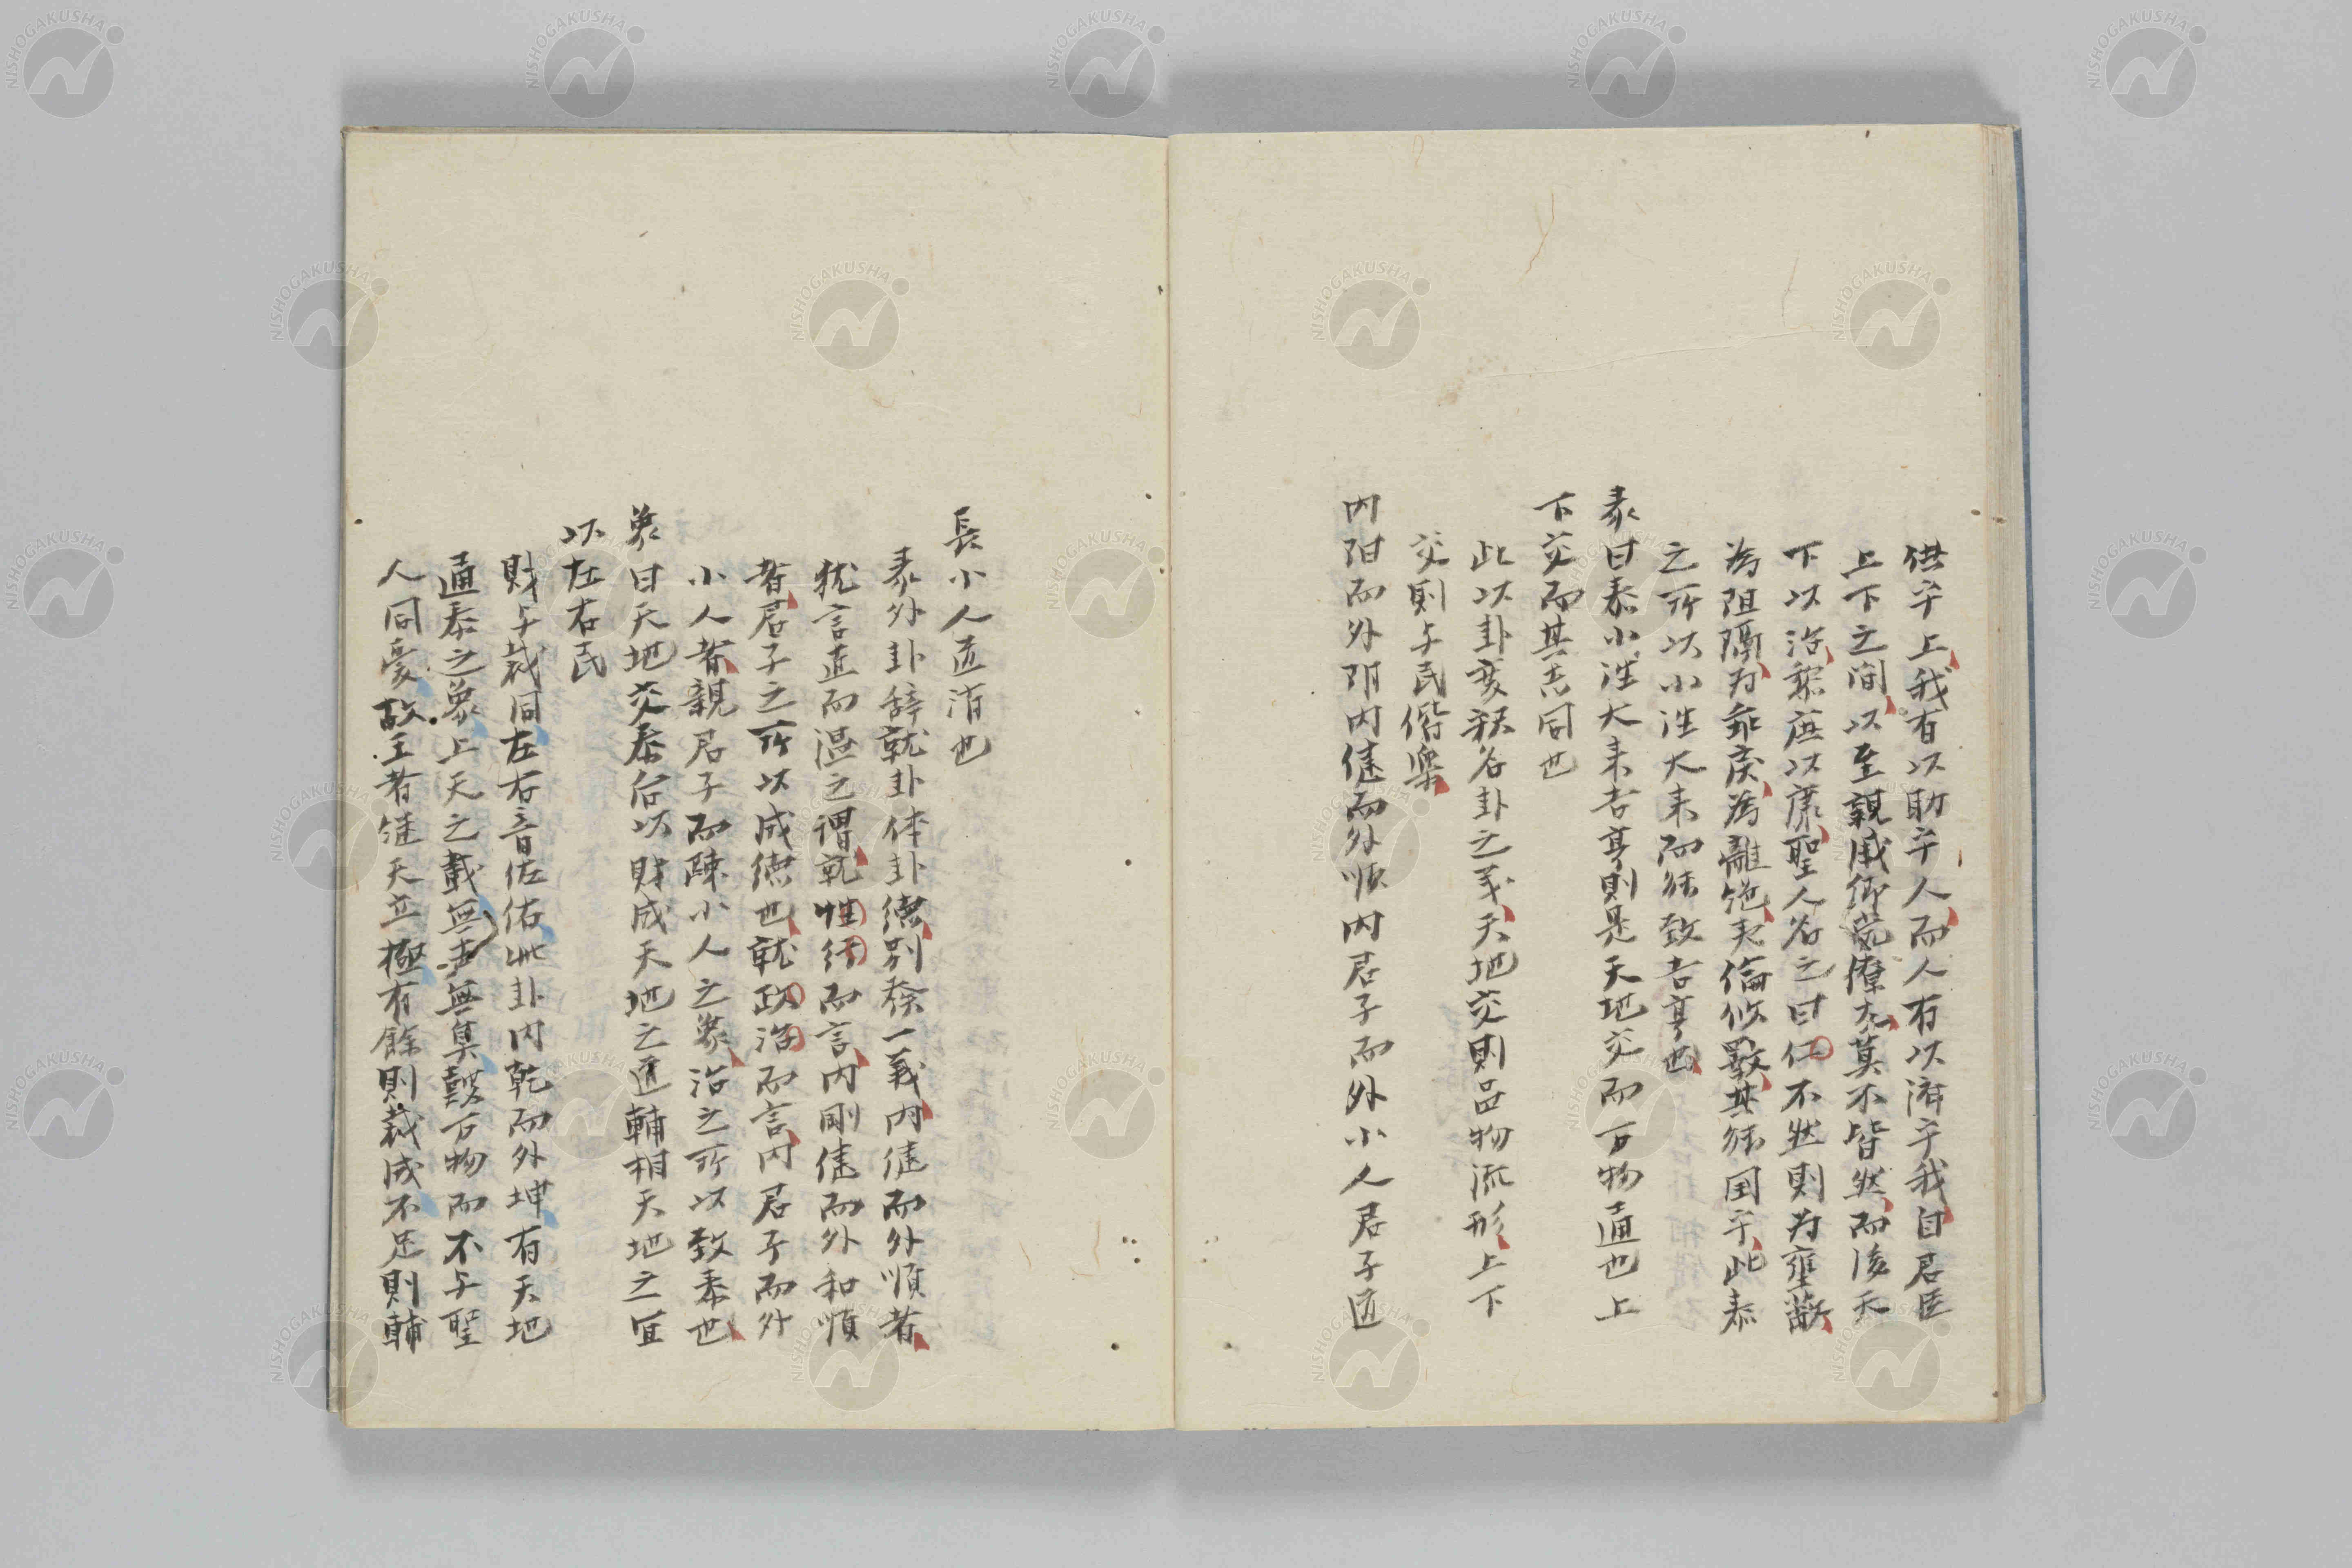 供乎上我有以助乎人而人有以済乎我自君臣
上下之間以至親戚御党僚友莫不皆然而後天
下以治黎庶以康聖人名之曰仁不然則为壅蔽
為阻隔为乖戾為離絶夫倫攸斁其能国乎此泰
之所以小往大来而能致吉亨也
彖曰泰小往大来吉亨則是天地交而万物通也上
下交而其志同也
此以卦变释名卦之義天地交則品物流形上下
交則与民偕楽
内阳而外阴内健而外順内君子而外小人君子道
長小人道消也
彖外卦辞就卦体卦德別發一義内健而外順者
犹言直而温之謂就性行而言内剛健而外和順
者君子之所以成德也就政治而言内君子而外
小人者親君子而疎小人之象治之所以致泰也
象曰天地交泰后以財成天地之道輔相天地之宜
以左右民
財与裁同左右音佐佑此卦内乾而外坤有天地
通泰之象上天之載無声無臭鼓万物而不与聖
人同憂故王者継天立極有餘則裁成不足則輔
NISHOGAKUSHA